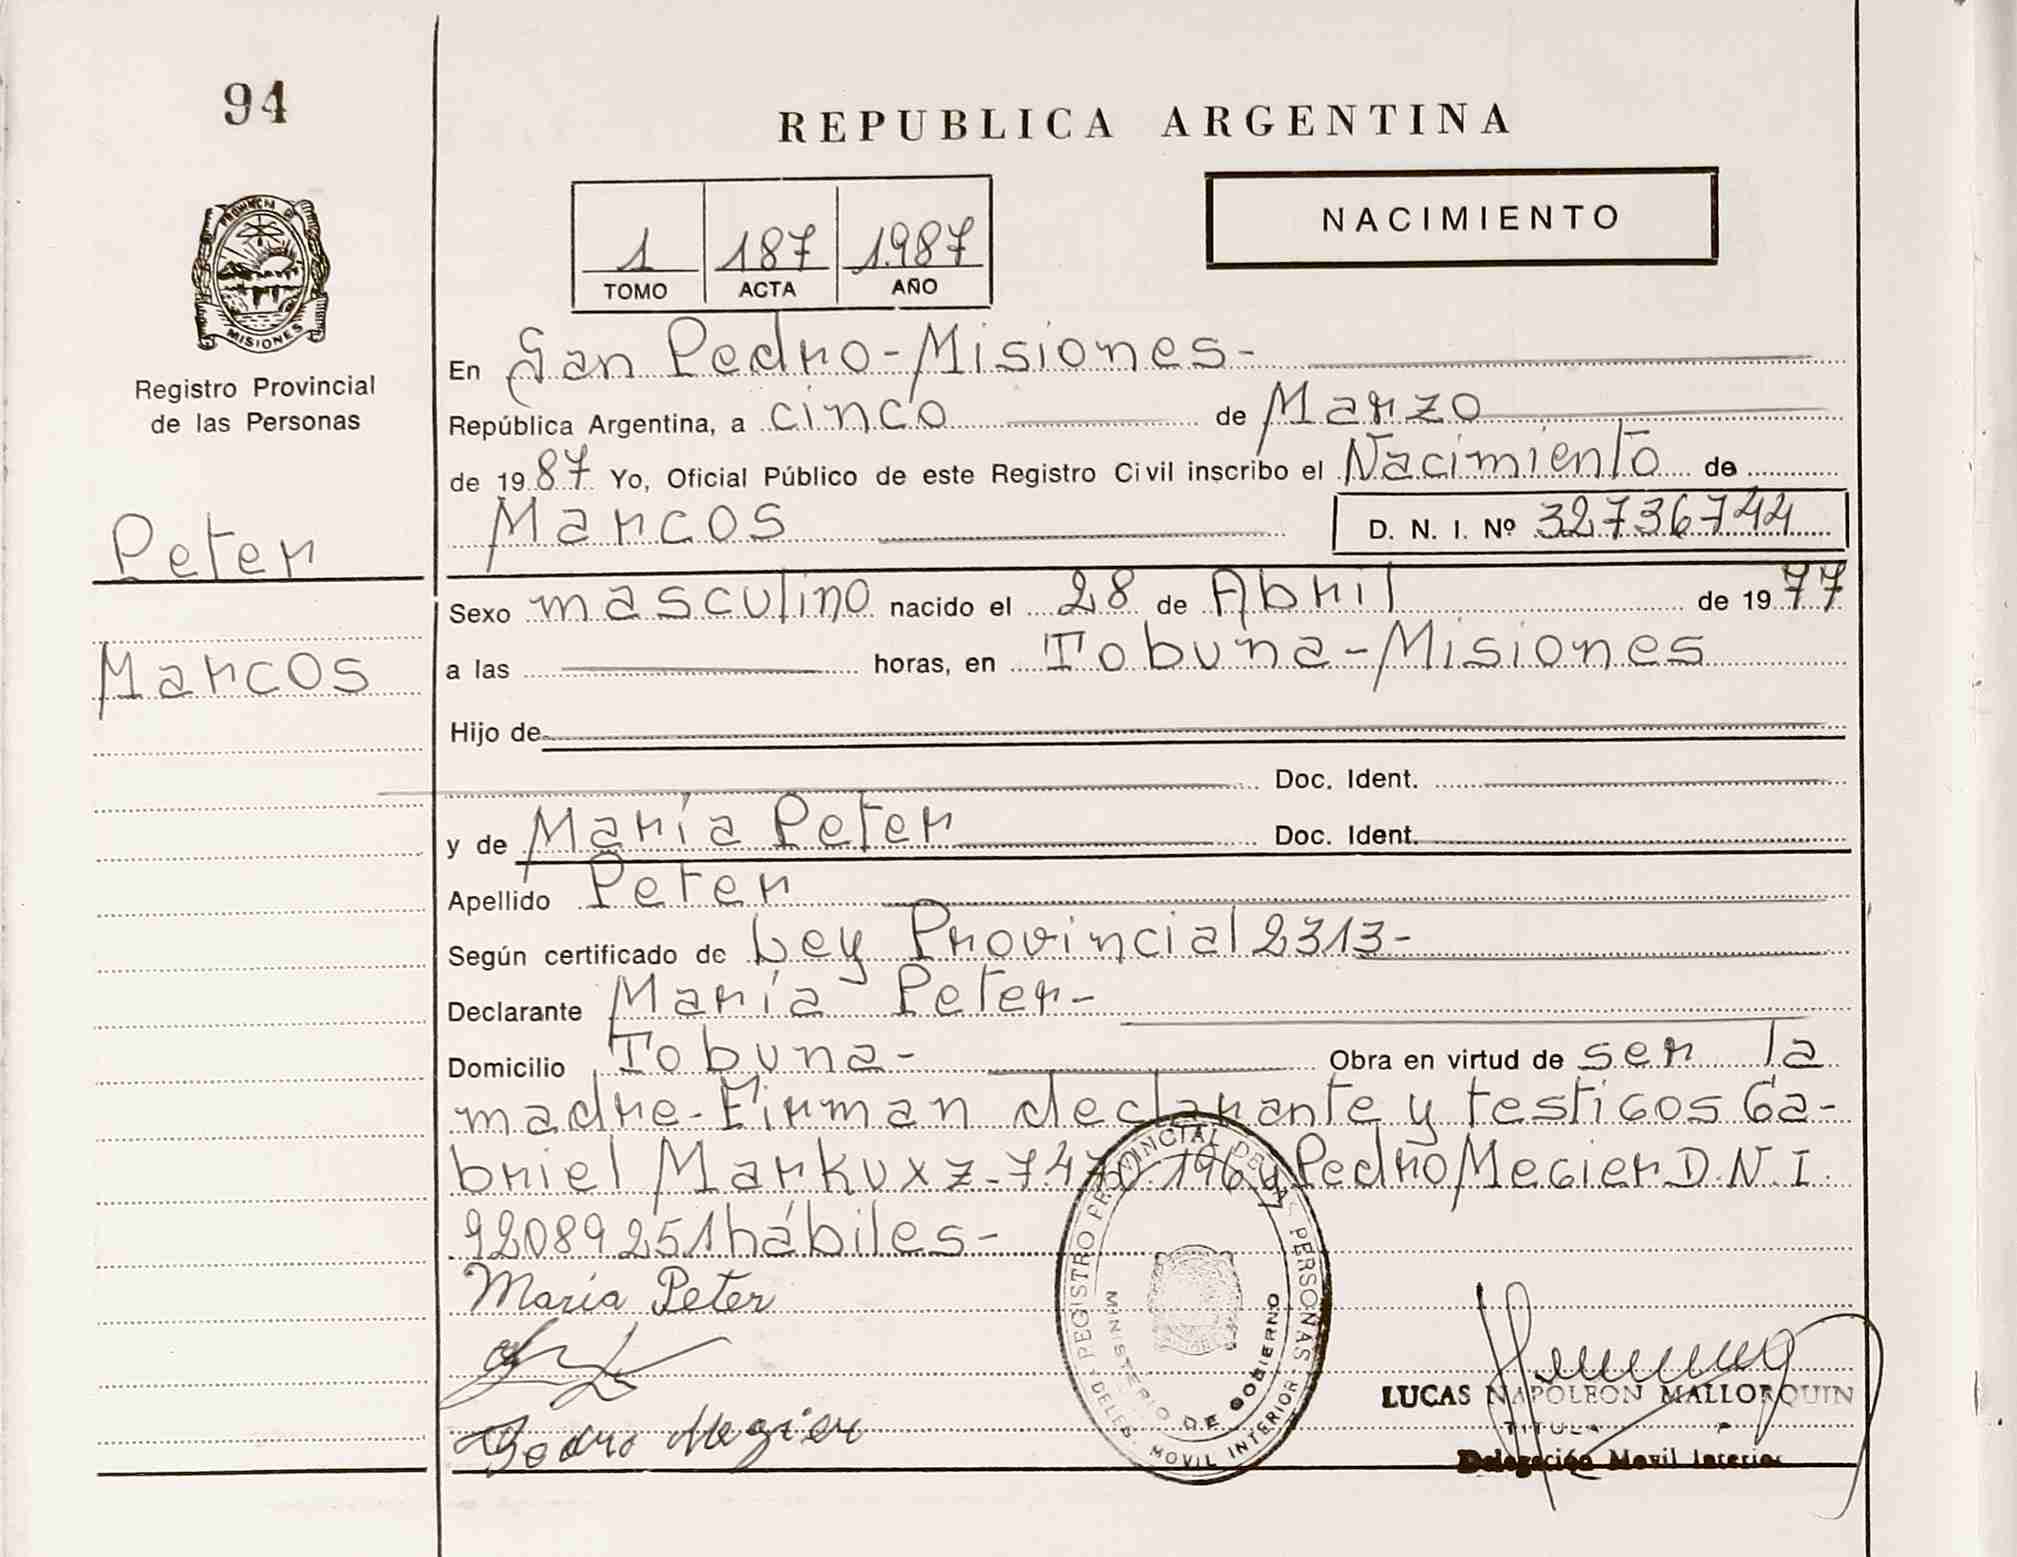 94
REPUBLICA ARGENTINA
PROVINCIA DE
MISIONES
Registro Provincial
de las Personas
1 187 1.987
TOMO ACTA AÑO
NACIMIENTO
En San Pedro-Misiones-
República Argentina, a cinco de Marzo
de 1987 Yo, Oficial Público de este Registro Civil inscribo el Nacimiento de
Marcos D. N. I. Nº 32736744
Peter
Marcos
Sexo masculino nacido el 28 de Abril de 1977
a las horas, en Tobuna-Misiones
Hijo de
Doc. Ident.
y de María Peter Doc. Ident.
Apellido Peter
Según certificado de Ley Provincial 2313-
Declarante María Peter-
Domicilio Tobuna- Obra en virtud de ser la
madre-Firman declarante y testigos Ga-
briel Markuxz-7470.196 y Pedro Megier D.N.I.
92089251 hábiles-
María Peter
Pedro Megier
REGISTRO PROVINCIAL DE LAS PERSONAS
MINISTERIO DE GOBIERNO
DELEG. MOVIL INTERIOR
LUCAS NAPOLEON MALLORQUIN
TITULAR
Delegación Movil Interior